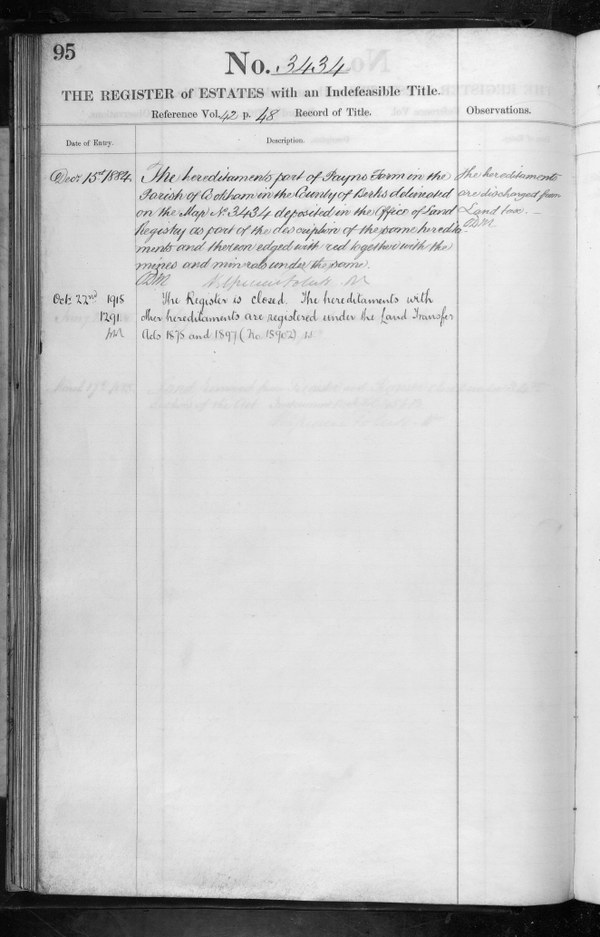 95
No. 3434
THE REGISTER of ESTATES with an Indefeasible Title.
Reference Vol. 42 p. 48 Record of Title.
Observations.
Date of Entry.
Description.
Decr. 15th 1884.
The hereditaments part of Payns Farm in the
Parish of Cookham in the County of Berks delineated
on the Map No. 3434 deposited in the Office of Land
Registry as part of the description of the same heredita-
ments and thereon edged with red together with the
mines and minerals under the same.
The hereditaments
are discharged from
Land tax. –
Oct: 22nd 1915
1291
The Register is closed. The hereditaments with
other hereditaments are registered under the Land Transfer
Acts 1875 and 1897 (No. 18902)